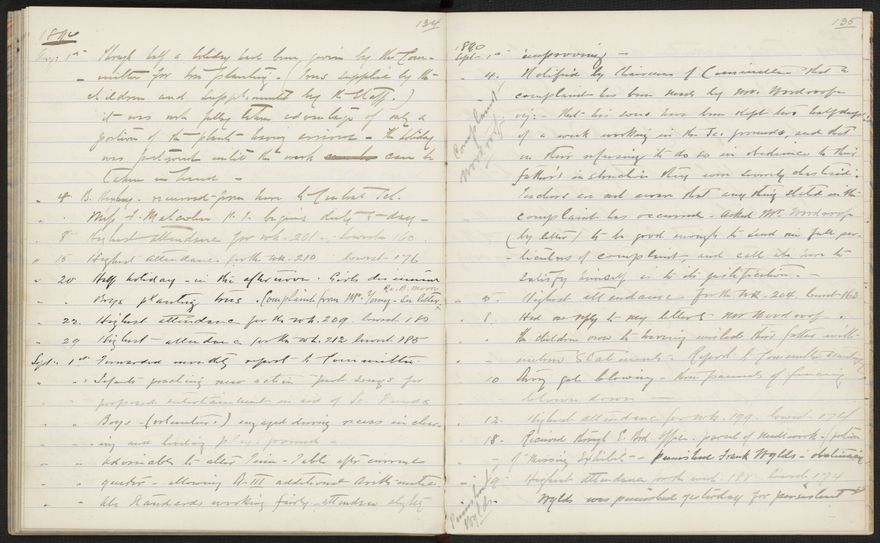 134
1890
Aug: 1st Though half a holiday had been given by the Com-
mittee for tree planting - (trees supplied by the
children and supplemented by the Staff.)
it was not fully taken advantage of only a
portion of the plants having arrived - the holiday
was postponed until the work can be
taken in hand -
4 B. removed from here to Central Scl.
Miss F. Malcolm P. T. begins duty to-day -
8 Highest attendance for wk. 201 - lowest 160
15 Highest attendance for the wk. 210 lowest 176
20 Half holiday - in the afternoon. Girls dismissed
Boys planting trees. (Complaint from Mr. Young - See letter
Re B. Moore
22. Highest attendance for the wk. 209. lowest 180
29 Highest attendance for the wk. 212 lowest 185
Sept. 1st Forwarded monthly report to Committee
Infants practising new action songs for
proposed entertainment in aid of Sc. Funds
Boys - (volunteers.) engaged during recess in clear-
ing and play ground -
advisable to alter Time-Table after current
quarter - allowing St. III additional Arithmetic
All Standards working fairly - attendance slightly
135
1890
Sept. 1st improving -
4. Notified by Chairman of Committee that a
complaint has been made by Mr. Woodroof
viz:- that his sons have been kept two half days
of a week working in the Sc. grounds, and that
on their refusing to do so in obedience to their
father's instructions they were severely chastised.
Teachers are not aware that any thing stated in the
complaint has occurred - asked Mr. Woodroof
(by letter) to be good enough to send me full par-
ticulars of complaint - and call also here to
satisfy himself as to its justification. -
Complaint
Woodroof
5. Highest attendance for the wk. 204. lowest 160
8. Had no reply to my letter - nor Woodroof.
The children own to having mislead their father with
untrue statements - Report to Committee
10 Strong gale blowing - three panels of fencing
blown down -
12. Highest attendance for wk. 199. lowest 174
18. Received through E. Brd. Office. parcel of needlework -
punished Frank Wylds - obstinacy
19 Highest attendance for the week 188 lowest 174
Wylds was punished yesterday for persistent
Punishment
Wylds.